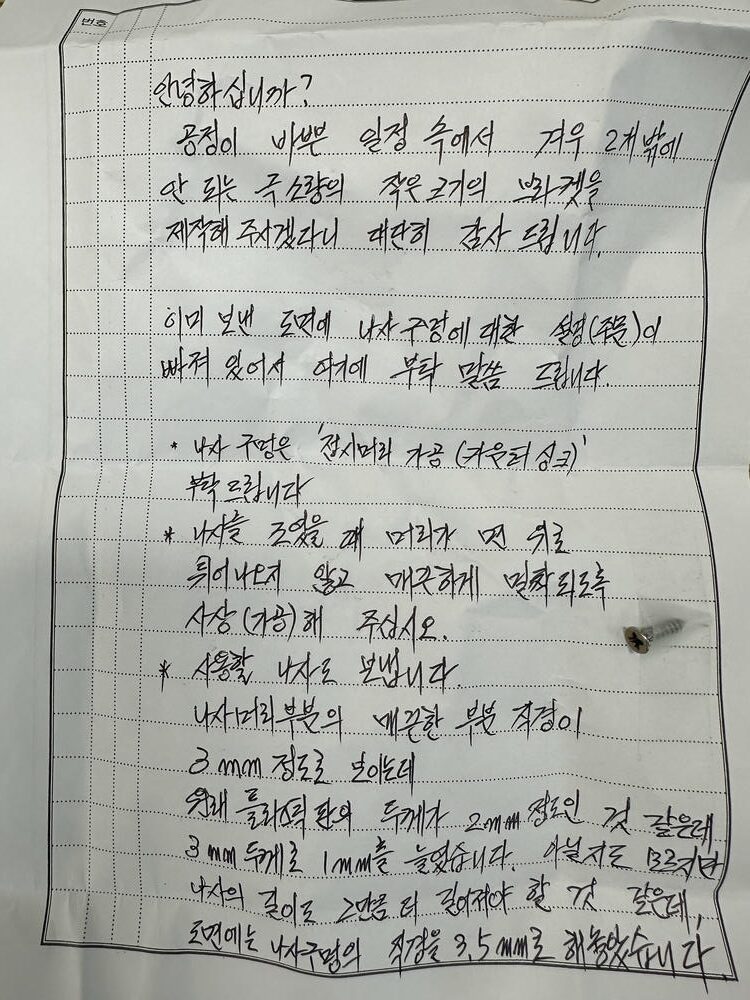 번호
안녕하십니까?
공정이 바쁜 일정 속에서 겨우 2개밖에
안 되는 극소량의 작은 크기의 브라켓을
제작해 주시겠다니 대단히 감사 드립니다.
이미 보낸 도면에 나사 구멍에 대한 설명(주문)이
빠져 있어서 여기에 부탁 말씀 드립니다.
* 나사 구멍은 '접시머리 가공 (카운터 싱크)'
부탁 드립니다
* 나사를 조였을 때 머리가 면 위로
튀어나오지 않고 매끈하게 밀착되도록
사상(가공)해 주십시오.
* 사용할 나사도 보냅니다.
나사머리부분의 매끈한 부분 직경이
3mm 정도로 보이는데
원래 플라스틱 판의 두께가 2mm 정도인 것 같은데
3mm 두께로 1mm를 늘렸습니다. 아실지도 모르지만
나사의 길이도 그만큼 더 길어져야 할 것 같은데,
도면에는 나사구멍의 직경을 3.5mm로 해놓았습니다.